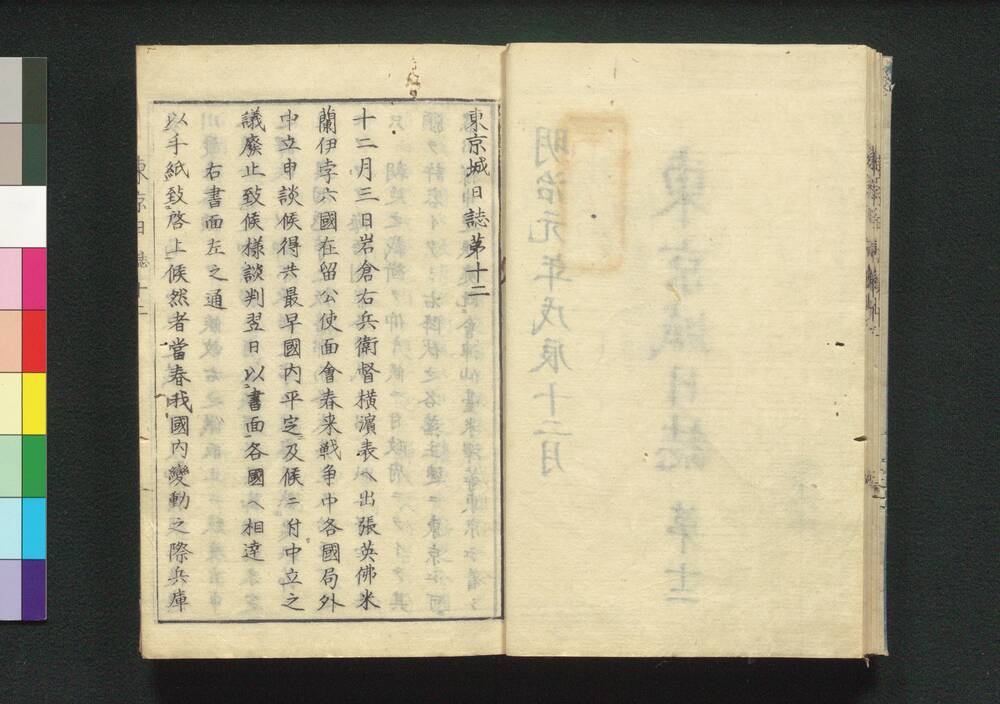 東京城日誌第十二
十二月三日岩倉右兵衛督横濵表ヘ出張英佛米
蘭伊孛六國在留公使面會春来戦争中各國局外
中立申談候得共最早國内平定及候ニ付中立之
議廢止致候様談判翌日以書面各國ヘ相達
右書面左之通
以手紙致啓上候然者當春我國内變動之際兵庫
東京日誌 十二
明治元年戊辰十二月
東京城日誌 第十二